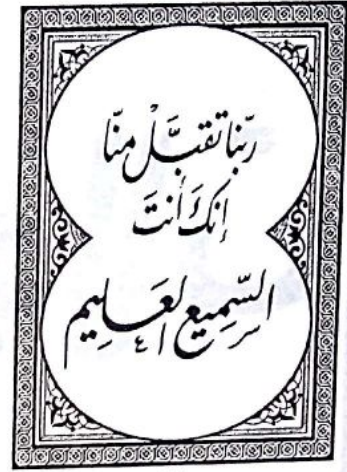 ربّنا تقبَّلْ منّا
إنكَ أنتَ
السّمِيع العَلِيم